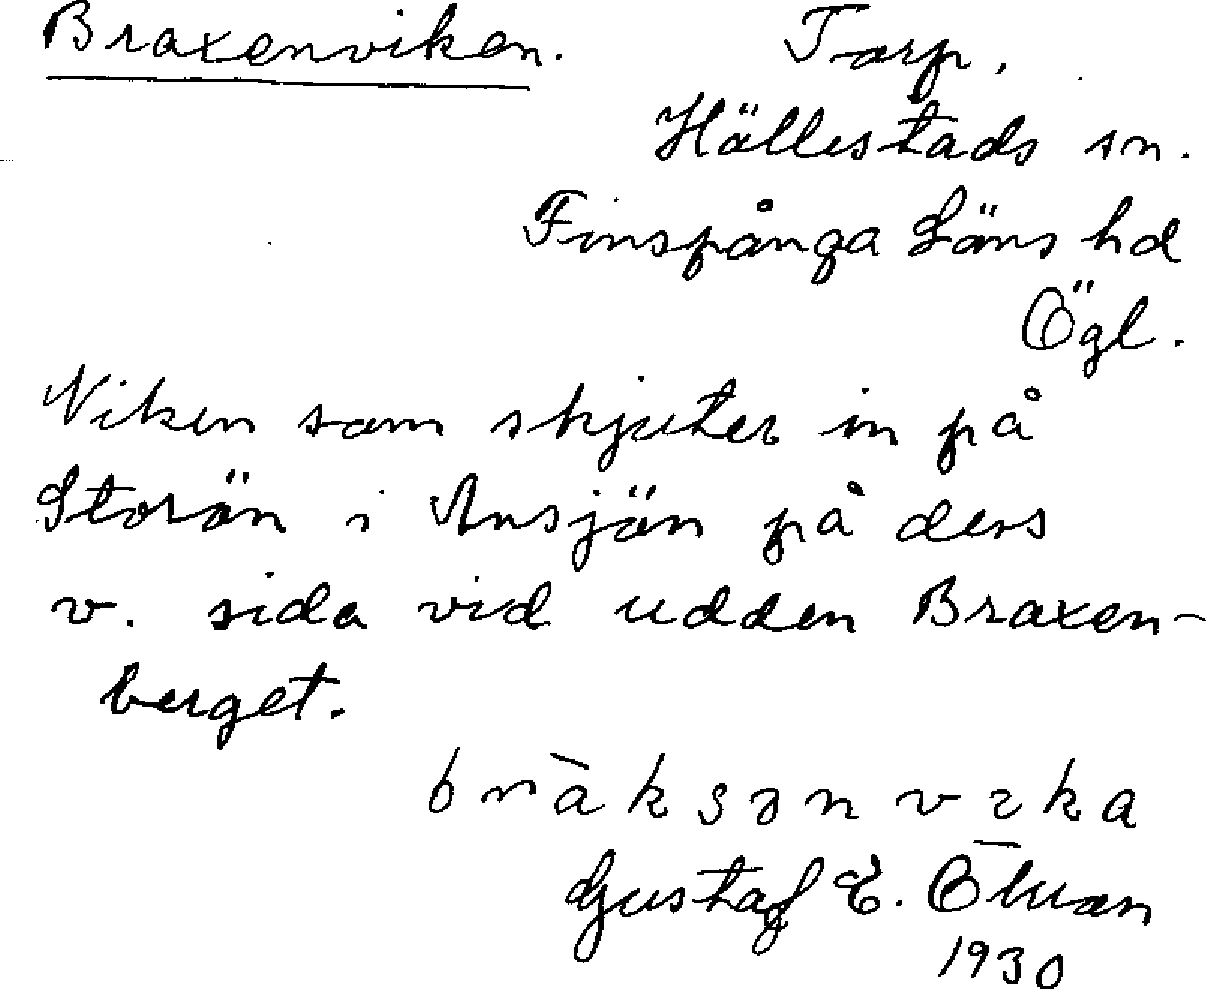 Braxenviken. Torp.
Hällestads sn.
Finspånga Läns hd
Ögl.
Viken som skjuter in på
Storön i Ansjön på dess
v. sida vid udden Braxen-
berget.
bràksənvɩka
Gustaf E.
1930